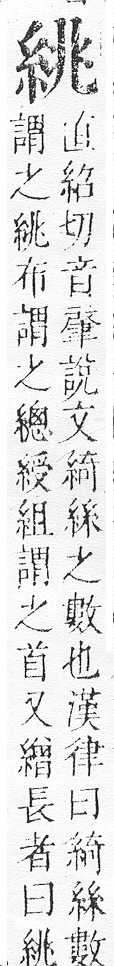 絩
直紹切音肈說文綺絲之數也漢律曰綺絲數
謂之絩布謂之總綬組謂之首又繒長者曰絩